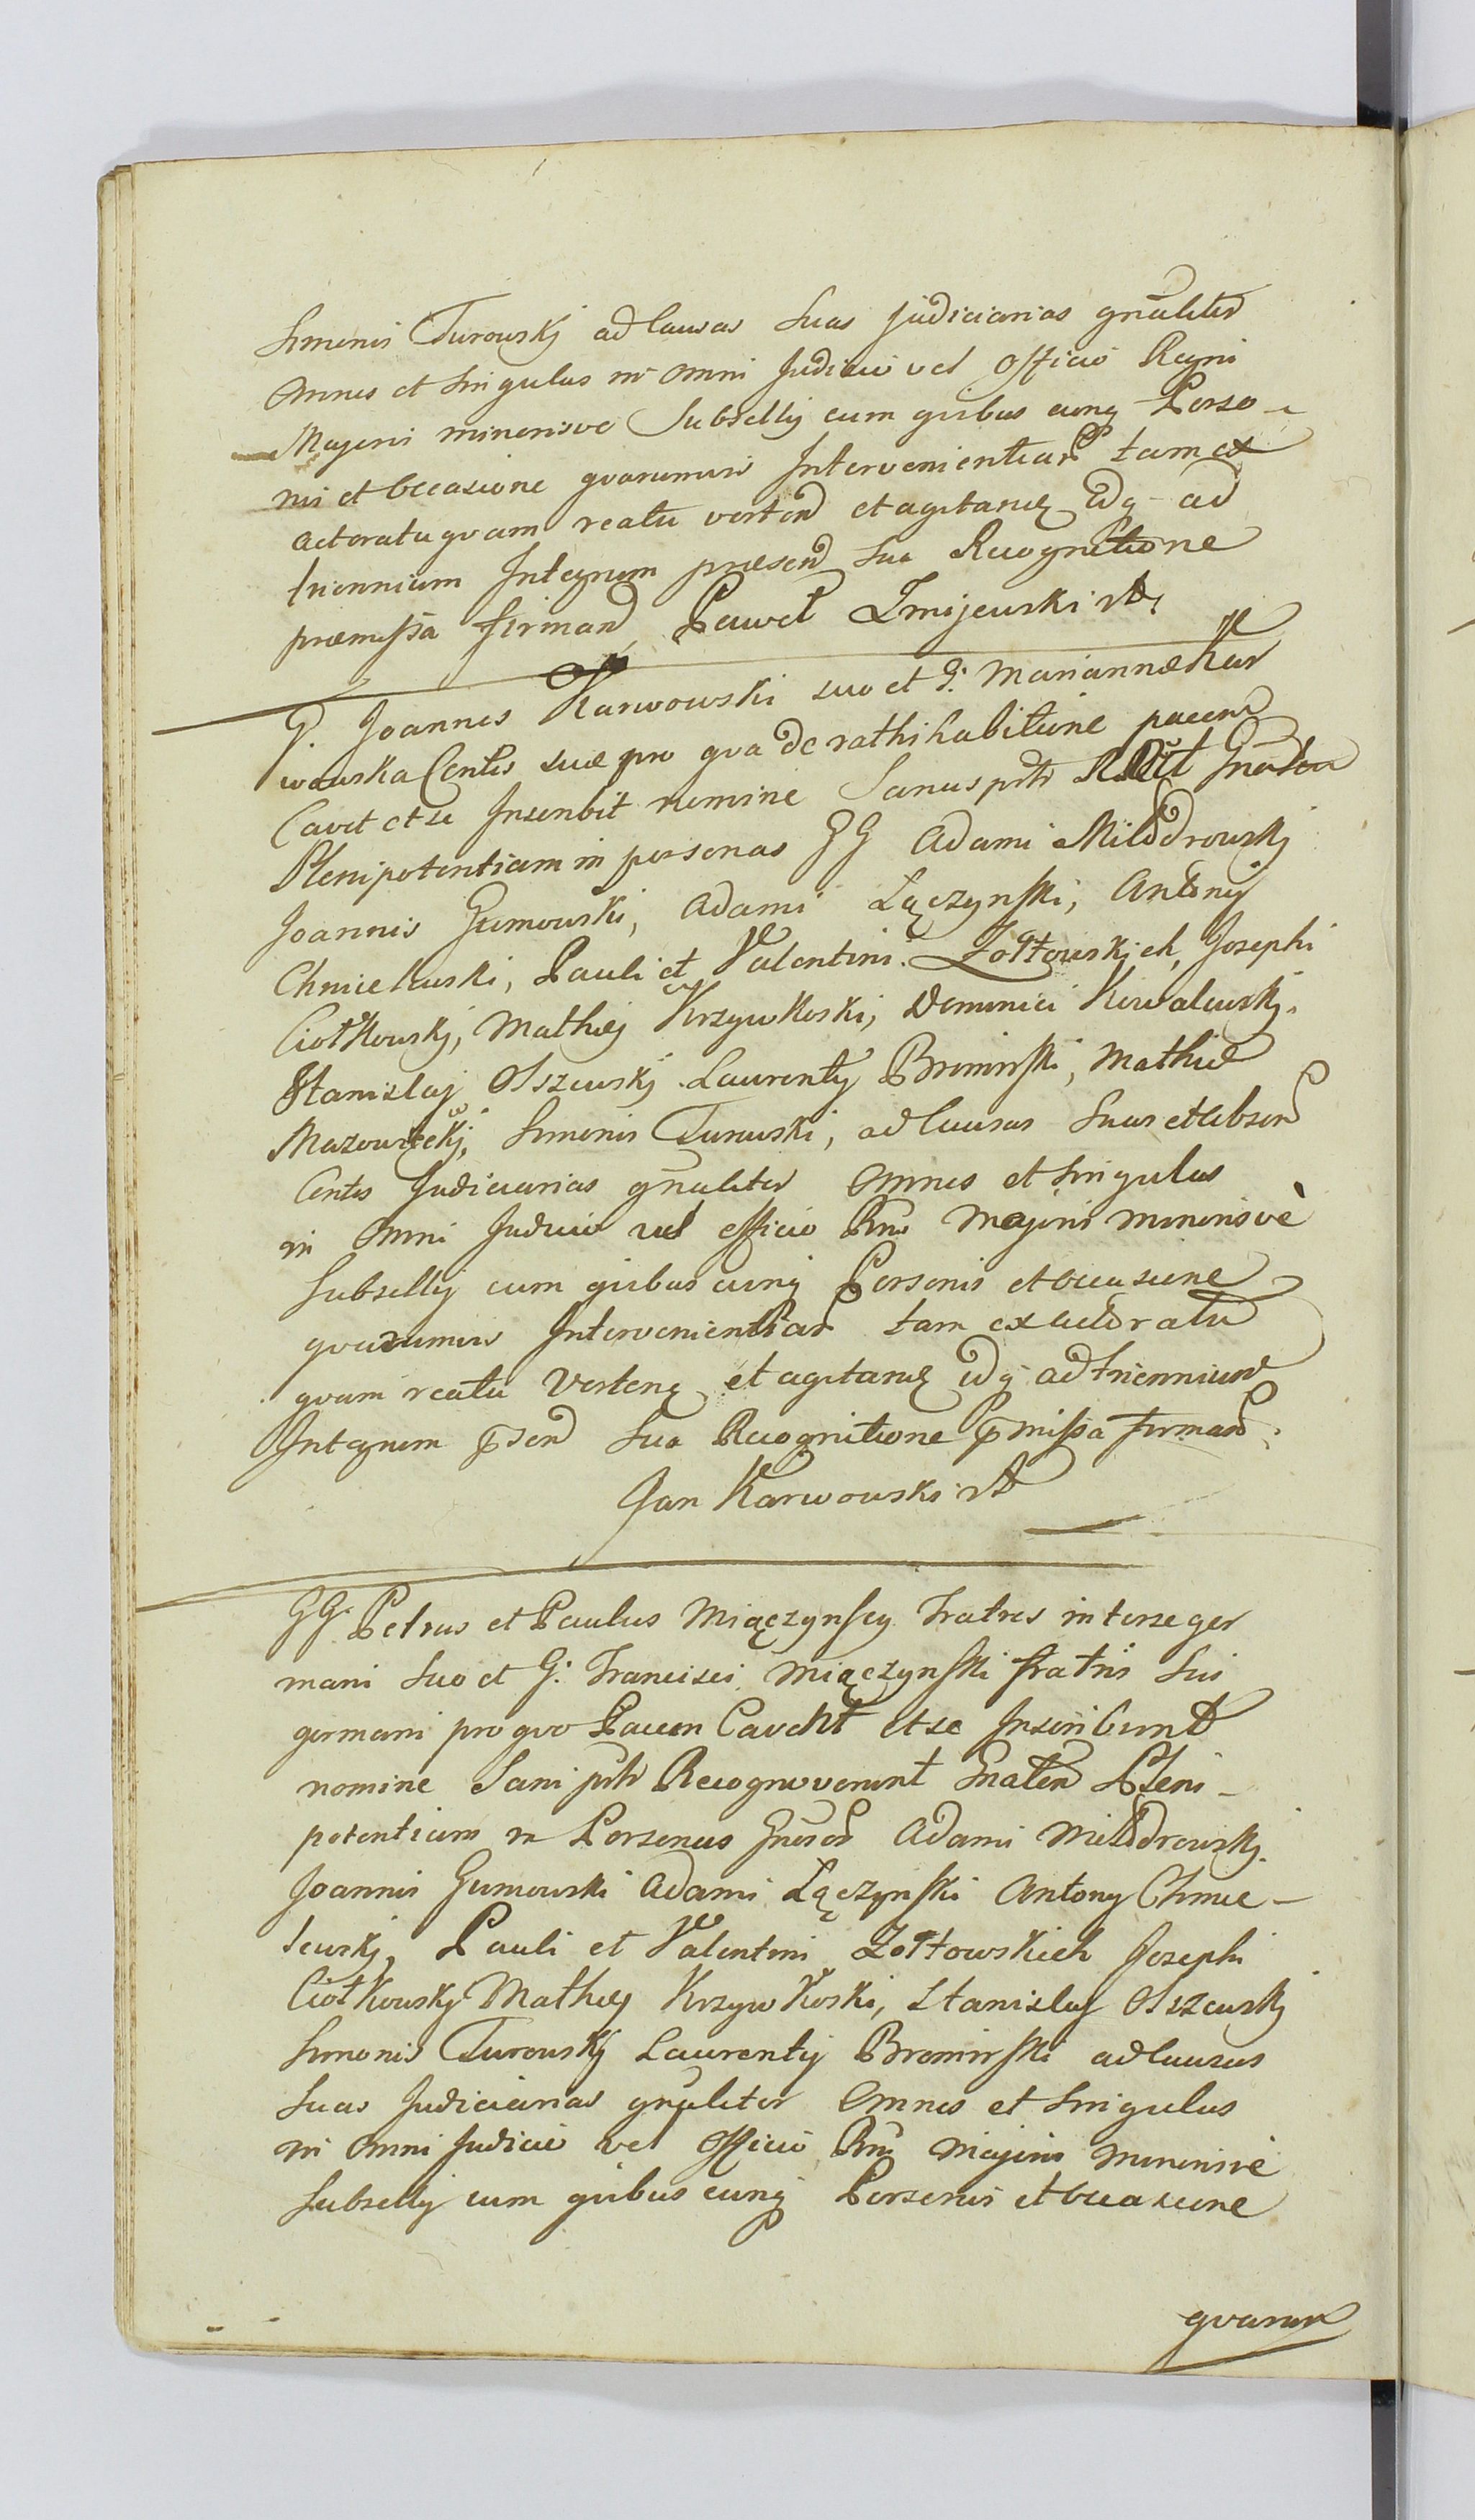 Simonis Turowskj ad Causas Suas judiciarias gnaliter
Omnes et Singulas in omni Judicio vel Officio Regni
Majoris minorisve Subsellij cum qvibus cunq Perso-
nis et Occasione qvarumvis Intervenientiar tam ex
actoratu qvam reatu verten et agitan Idq ad
triennium Integrum præsen sua Recognitione
præmissa firman Paweł Żmijewski
G. Joannes Karwowski suo et G: Mariannæ Kar
wowska Contis suæ pro qva de rathihabitione pacem
Cavet et se Inscribit nomine Sanus prt Recit Gnalem
Plenipotentiam in personas GG Adami Milodrowskj
Joannis Gumowski, Adami Łączynski, Antonij
Chmielewski, Pauli et Valentini Zołtowskich, Josephi
Ciołkowskj, Mathej Krzywkoski, Dominici Kowalewskj.
Stanislaj Olszewskj Laurentij Bromirski, Mathiæ
Mazowieckj, Simonis Turowski, ad Causas Suas et Absen
Contis Judiciarias gnaliter Omnes et Singulas
in Omni Judicio vel officio Rni Majoris minorisve
Subsellij cum qvibus cunq Personis et Occasione
qvarumvis Intervenientiar tam ex actoratu
qvam reatu Verten et agitan idq ad triennium
Integrum psen Sua Recognitione pmissa firman
Jan Karwowski
GG. Petrus et Paulus Miączynscy Fratres inter se ger
mani Suo et G: Francisci Miączynski fratris Sui
germani pro qvo Pacem Cavent et se Inscribunt
nomine Sani prt Recognoverunt Gnalem Pleni-
potentiam in Personas Gnsor Adami Milodrowskj
Joannis Gumowski Adami Łączynski Antony Chmie-
lewskj, Pauli et Valentini Zołtowskich Josephi
Ciołkowskj Mathej Krzywkoski, Stanislaj Olszewskj
Simonis Turowskj Laurentij Bromirski ad Causas
Suas Judiciarias gnaliter Omnes et Singulas
in Omni Judicio vel Officio Rni Majoris minorisve
Subsellij cum qvibus cunq Personis et Occasione
qvarum